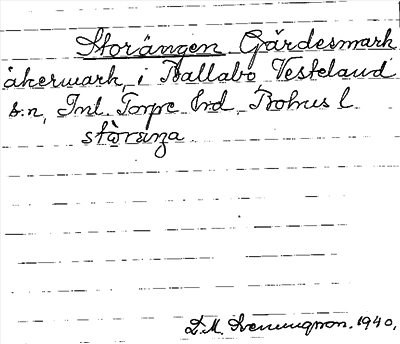 Storängen Gärdesmark
åkermark, i Ballabo Vesteland
s:n, Inl. Torpe hd. Bohus l.
stòränza
D.M. Svenungsson. 1940.